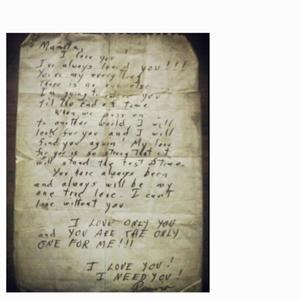 Mamita,
I love you!
I've always loved you!!!
You're my everything
There is no one else
I'm going to you
til the end of time.
When we pass on
to another world I will
look for you and I will
find you again! My love
for you is so strong that it
will stand the test of time.
You have always been
and always will be my
one true love. I can't
live without you.
I LOVE ONLY YOU
and YOU ARE THE ONLY
ONE FOR ME!!!
I LOVE YOU!
I NEED YOU!